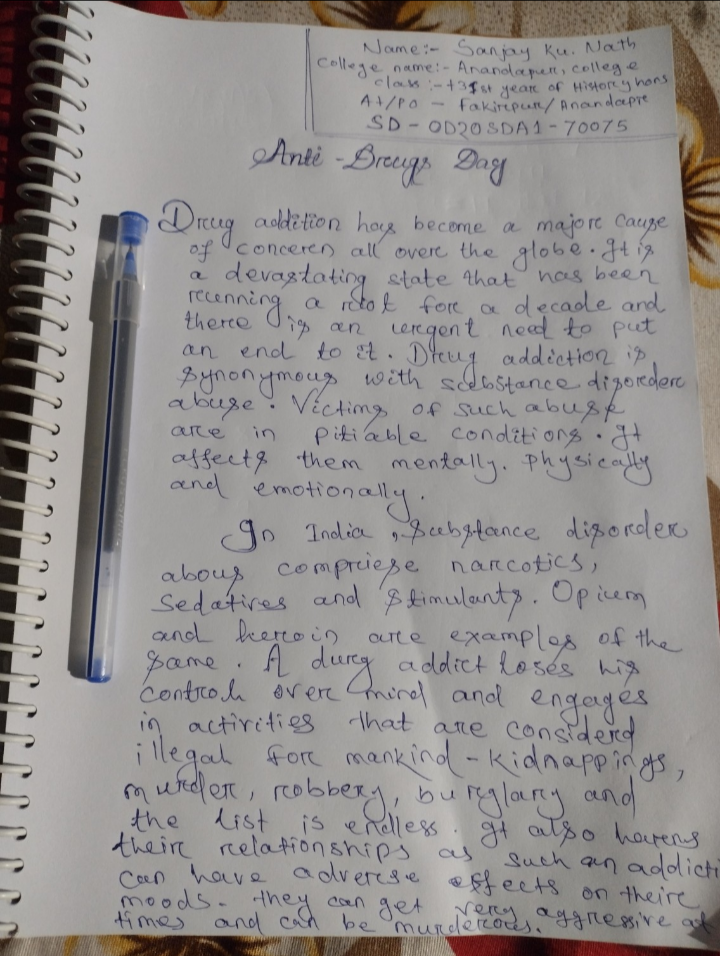 Name:- Sanjay Ku. Nath
College name:- Anandapur, college
Class:- +3 1st year of History hons
At/Po - Fakirpur/Anandapur
SD - OD20SDA1-70075
Anti-Drugs Day
Drug addition has become a major cause
of concern all over the globe. It is
a devastating state that has been
running a riot for a decade and
there is an urgent need to put
an end to it. Drug addiction is
synonymous with substance disorder
abuse. Victims of such abuse
are in pitiable conditions. It
affects them mentally. physically
and emotionally.
In India, substance disorder
abous compriese narcotics,
Sedatives and stimulants. Opium
and heroin are examples of the
same. A durg addict loses his
control over mind and engages
in activities that are considerd
illegal for mankind - kidnappings,
murder, robbery, burglary and
the list is endless. It also harms
their relationships as such an addicti
can have adverse effects on their
moods. they can get very aggressive at
times and can be murderous.